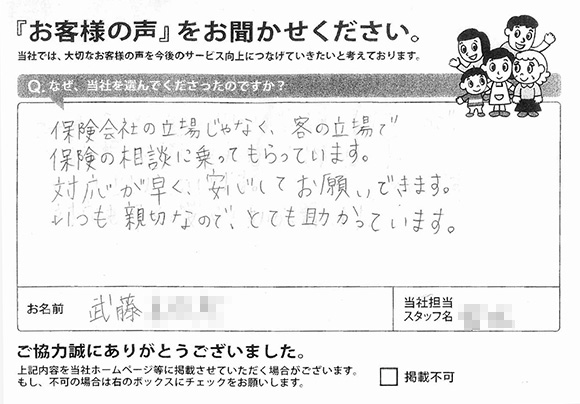 『お客様の声』をお聞かせください。
当社では、大切なお客様の声を今後のサービス向上につなげていきたいと考えております。
Q. なぜ、当社を選んでくださったのですか？
保険会社の立場じゃなく、客の立場で
保険の相談に乗ってもらっています。
対応が早く、安心してお願いできます。
いつも親切なので、とても助かっています。
お名前 武藤
当社担当
スタッフ名
ご協力誠にありがとうございました。
上記内容を当社ホームページ等に掲載させていただく場合がございます。
もし、不可の場合は右のボックスにチェックをお願いします。
掲載不可